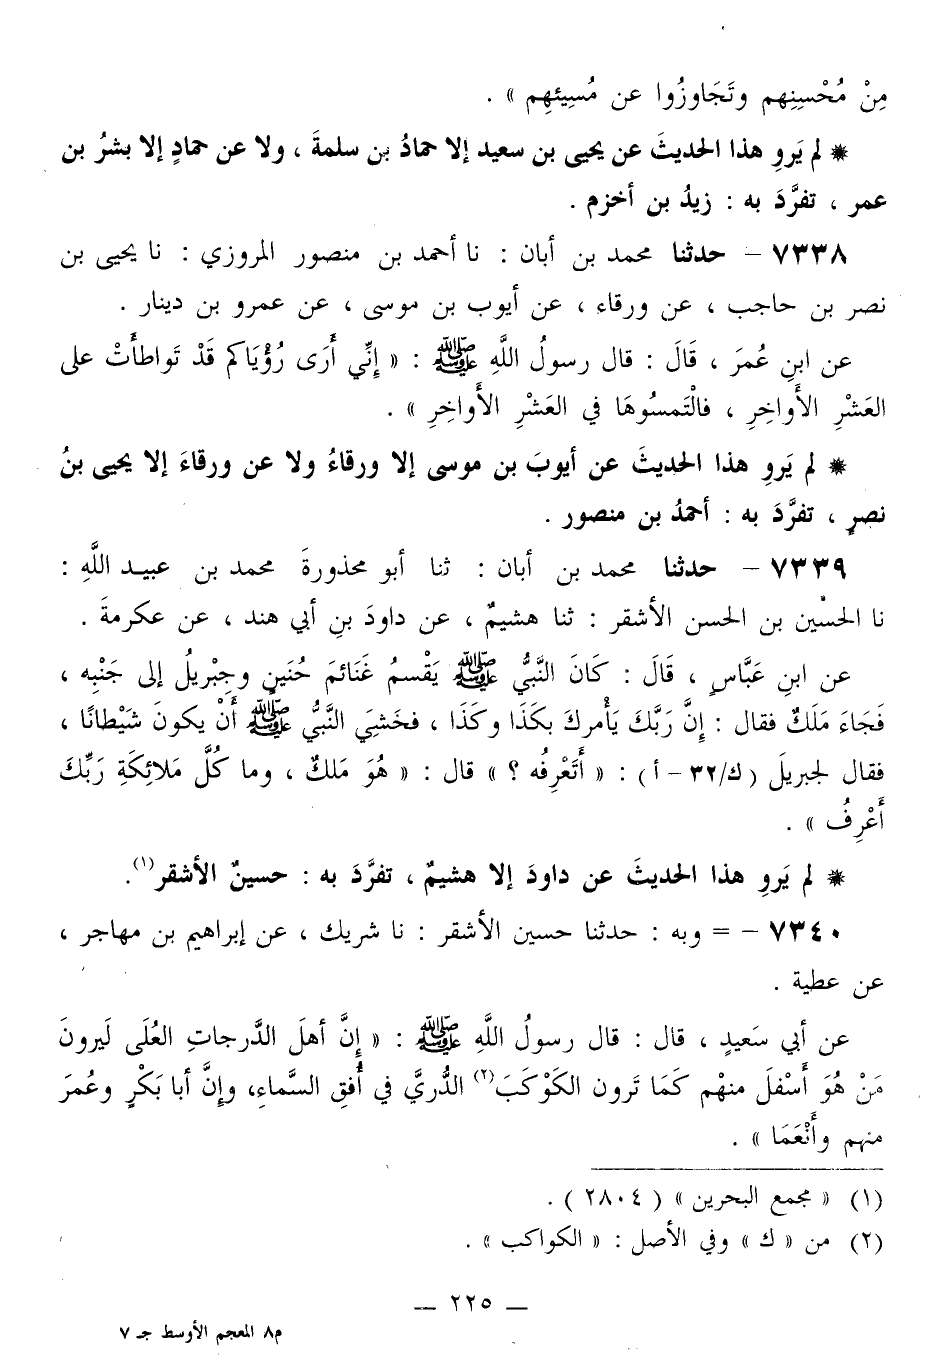 مِنْ مُحْسِنِهم وتَجَاوزُوا عن مُسِيئهِم » .
* لم يَروِ هذا الحديثَ عن يحيى بن سعيد إلا حمادُ بن سلمةَ ، ولا عن حمادٍ إلا بشرُ بن
عمر ، تفرَّدَ به : زيدُ بن أخزم .
٧٣٣٨ – حدثنا محمد بن أبان : نا أحمد بن منصور المروزي : نا يحيى بن
نصر بن حاجب ، عن ورقاء ، عن أيوب بن موسى ، عن عمرو بن دينار .
عن ابنِ عُمرَ ، قَالَ : قال رسولُ اللَّهِ ﷺ : « إنِّي أَرَى رُؤْيَاكم قَدْ تَواطأَتْ على
العَشْرِ الأَواخِرِ ، فالْتمسُوهَا في العَشْرِ الأَواخِرِ » .
* لم يَروِ هذا الحديثَ عن أيوبَ بن موسى إلا ورقاءُ ولا عن ورقاءَ إلا يحيى بنُ
نصرٍ ، تفرَّدَ به : أحمدُ بن منصور .
٧٣٣٩ – حدثنا محمد بن أبان : ثنا أبو محذورةَ محمد بن عبيد اللَّهِ :
نا الحسْين بن الحسن الأشقر : ثنا هشيمٌ ، عن داودَ بنِ أبي هند ، عن عكرمةَ .
عن ابنِ عَبَّاسٍ ، قَالَ : كَانَ النَّبيُّ ﷺ يَقْسمُ غَنَائمَ حُنَينٍ وجِبْريلُ إلى جَنْبِه ،
فَجَاءَ مَلَكٌ فقال : إنَّ رَبَّكَ يَأْمركَ بكَذَا وكَذَا ، فخَشيَ النَّبيُّ ﷺ أَنْ يكونَ شَيْطانًا ،
فقال لجبريلَ ( ك/٣٢ – أ ) : « أَتَعْرِفُه ؟ » قال : « هُوَ مَلكٌ ، وما كُلَّ مَلائِكَةِ رَبِّكَ
أَعْرِفُ » .
* لم يَروِ هذا الحديثَ عن داودَ إلا هشيمٌ ، تفرَّدَ به : حسينٌ الأشقر(١).
٧٣٤٠ – = وبه : حدثنا حسين الأشقر : نا شريك ، عن إبراهيم بن مهاجر ،
عن عطية .
عن أبي سَعيدٍ ، قال : قال رسولُ اللَّهِ ﷺ : « إنَّ أهلَ الدَّرجاتِ العُلَى لَيرونَ
مَنْ هُوَ أَسْفلَ منهْم كَمَا تَرون الكَوْكَبَ(٢) الدُّريَّ في أُفقِ السَّماءِ، وإنَّ أبا بَكْرٍ وعُمرَ
منهم وأَنْعَمَا » .
(١) « مجمع البحرين » ( ٢٨٠٤ ) .
(٢) من « ك » وفي الأصل : « الكواكب » .
— ٢٢٥ —
م٨ المعجم الأوسط جـ ٧